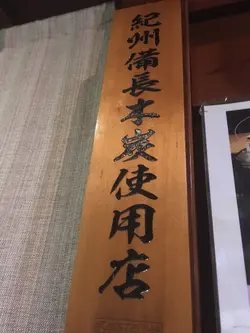 紀州備長木炭使用店